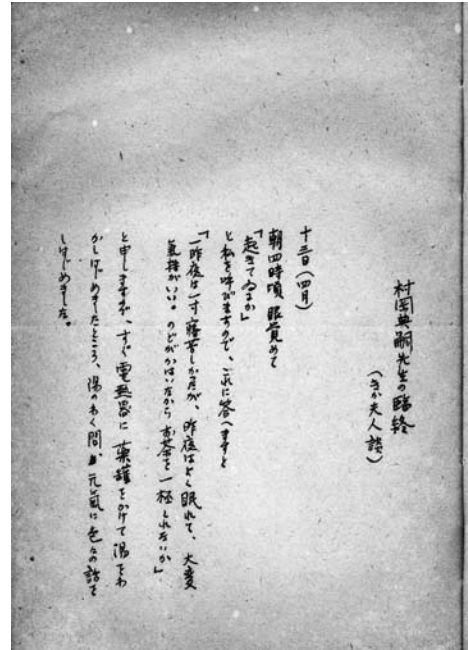 村岡典嗣先生の臨終
（きか夫人談）
十三日（四月）
朝四時頃眼覚めて
「起きてゐるか」
と私を呼びますので、これに答へますと
「一昨夜は一寸寝苦しかつたが、昨夜はよく眠れて、大変
気持がいい。のどがかはいたから お茶を一杯くれないか」
と申しますので、すぐ電熱器に薬罐をかけて湯をわ
かしはじめましたところ、湯のわく間、元氣に色々の話を
しはじめました。